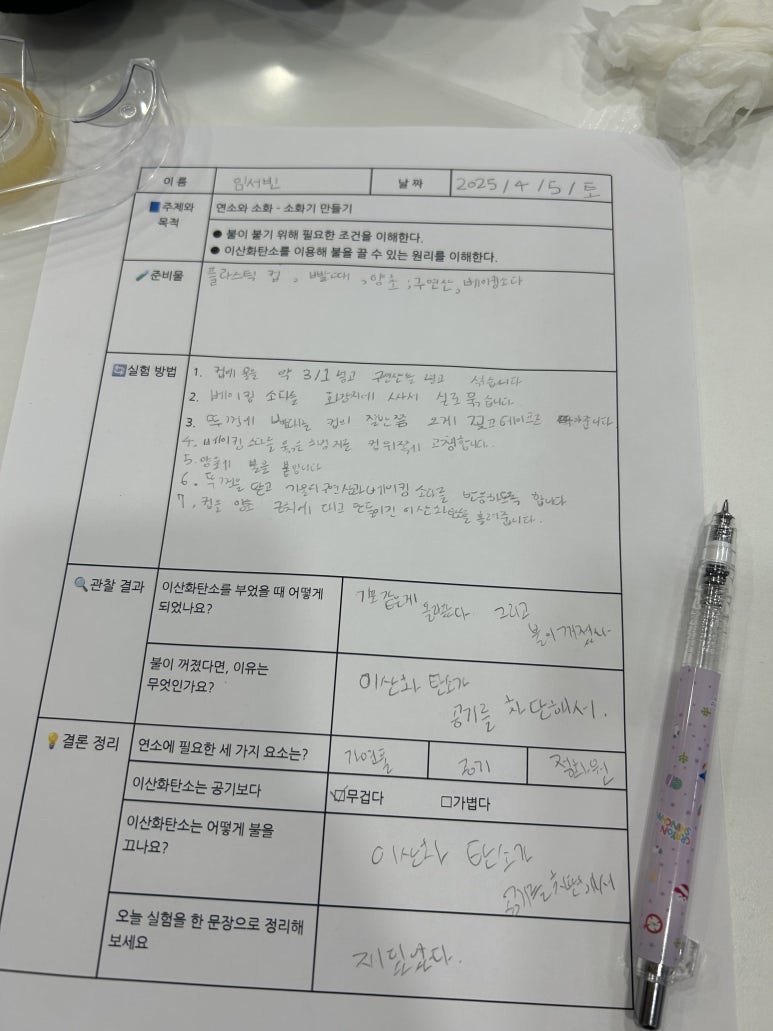 이 름 임서빈 날 짜 2025/4/5/토
주제와 목적 연소와 소화 - 소화기 만들기
● 불이 붙기 위해 필요한 조건을 이해한다.
● 이산화탄소를 이용해 불을 끌 수 있는 원리를 이해한다.
준비물 플라스틱 컵, 빨때, 양초, 구연산, 베이킹소다
실험 방법
1. 컵에 물을 약 3/1 넣고 구연산을 넣고 섞습니다
2. 베이킹 소다를 화장지에 싸서 실로 묶습니다
3. 뚜껑에 빨때를 컵의 절반쯤 오게 꽂고 테이프로 줍니다
4. 베이킹 소다를 묶은 지를 컵 위쪽에 고정합니다.
5. 양초에 불을 붙입니다
6. 뚜껑을 닫고 기울여 구연산과 베이킹 소다를 반응하도록 합니다
7. 컵을 양초 근처에 대고 만들어진 이산화탄소를 흘려줍니다.
관찰 결과 이산화탄소를 부었을 때 어떻게 되었나요?
기포 같은게 올라온다 그리고
불이 꺼졌다
불이 꺼졌다면, 이유는 무엇인가요?
이산화 탄소가
공기를 차단해서.
결론 정리 연소에 필요한 세 가지 요소는? 가연물 공기 점화원
이산화탄소는 공기보다 ☑무겁다 □가볍다
이산화탄소는 어떻게 불을 끄나요?
이산화 탄소가
공기를 차단해서
오늘 실험을 한 문장으로 정리해 보세요
재밌었다.
CRAYON SHINCHAN